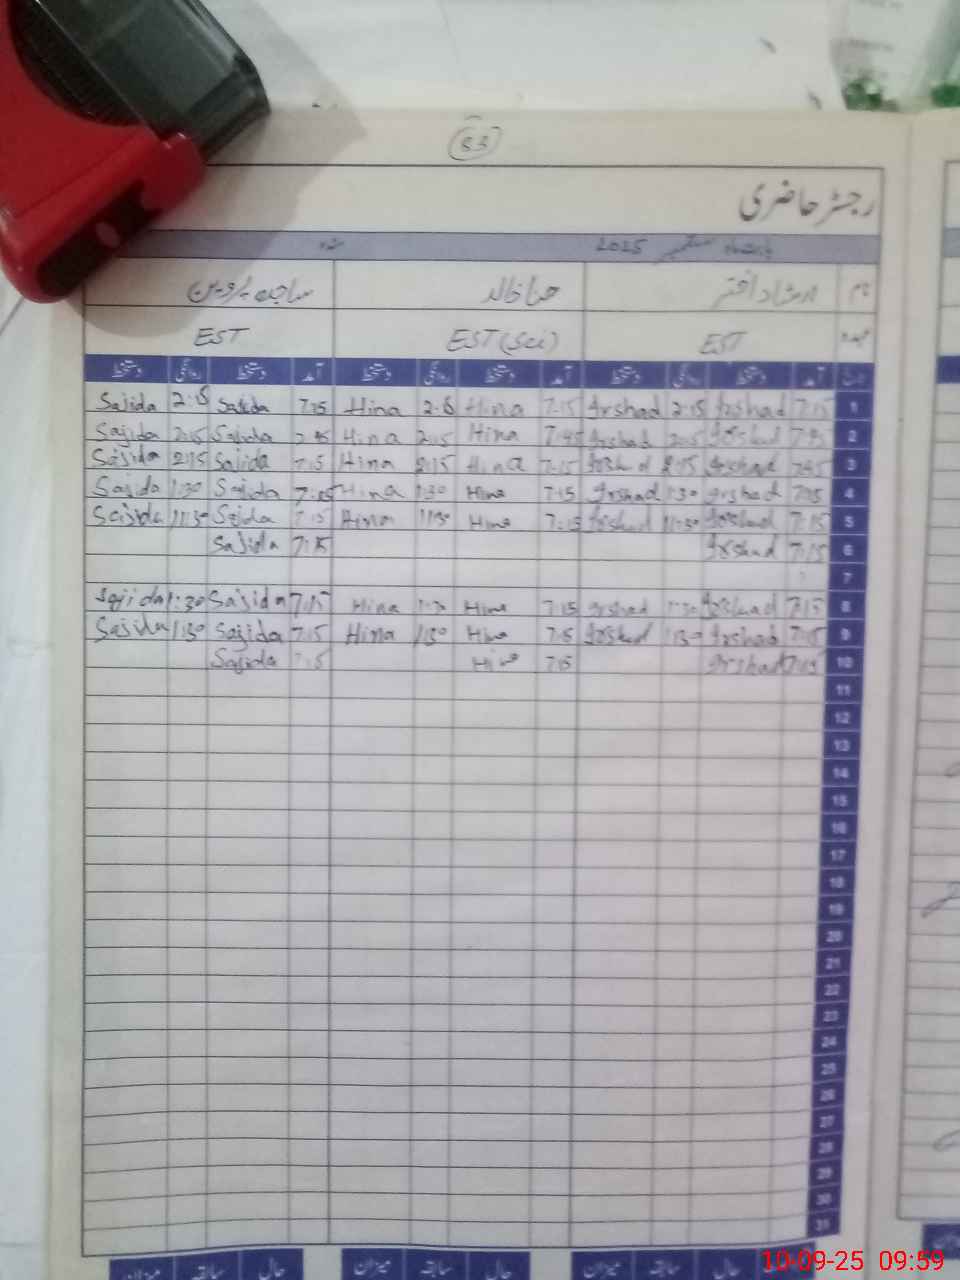 53
رجسٹر حاضری
بابت ماہ ستمبر 2025
نام ارشاد اختر حنا خالد ساجدہ پروین
عہدہ EST EST (Sci) EST
تاریخ آمد دستخط روانگی دستخط آمد دستخط روانگی دستخط آمد دستخط روانگی دستخط
Sajida 2:15 Sajida 7:15 Hina 2:15 Hina 7:15 Irshad 2:15 Irshad 7:15 1
Sajida 2:15 Sajida Hina 2:15 Hina Irshad 2:15 Irshad 2
Sajida 2:15 Sajida 7:15 Hina 2:15 Hina 7:15 Irshad 2:15 Irshad 3
Sajida 1:30 Sajida Hina 1:30 Hina 7:15 Irshad 1:30 Irshad 4
Sajida 11:30 Sajida 7:15 Hina 11:30 Hina 7:15 Irshad 11:30 Irshad 7:15 5
Sajida 7:15 Irshad 7:15 6
7
Sajida 1:30 Sajida 7:15 Hina 1:30 Hina 7:15 Irshad 1:30 Irshad 7:15 8
Sajida 1:30 Sajida 7:15 Hina 1:30 Hina 7:15 Irshad 1:30 Irshad 7:15 9
Sajida 7:15 Hina 7:15 Irshad 7:15 10
11
12
13
14
15
16
17
18
19
20
21
22
23
24
25
26
27
28
29
30
31
حال سابقہ میزان حال سابقہ میزان حال سابقہ میزان
10-09-25 09:59